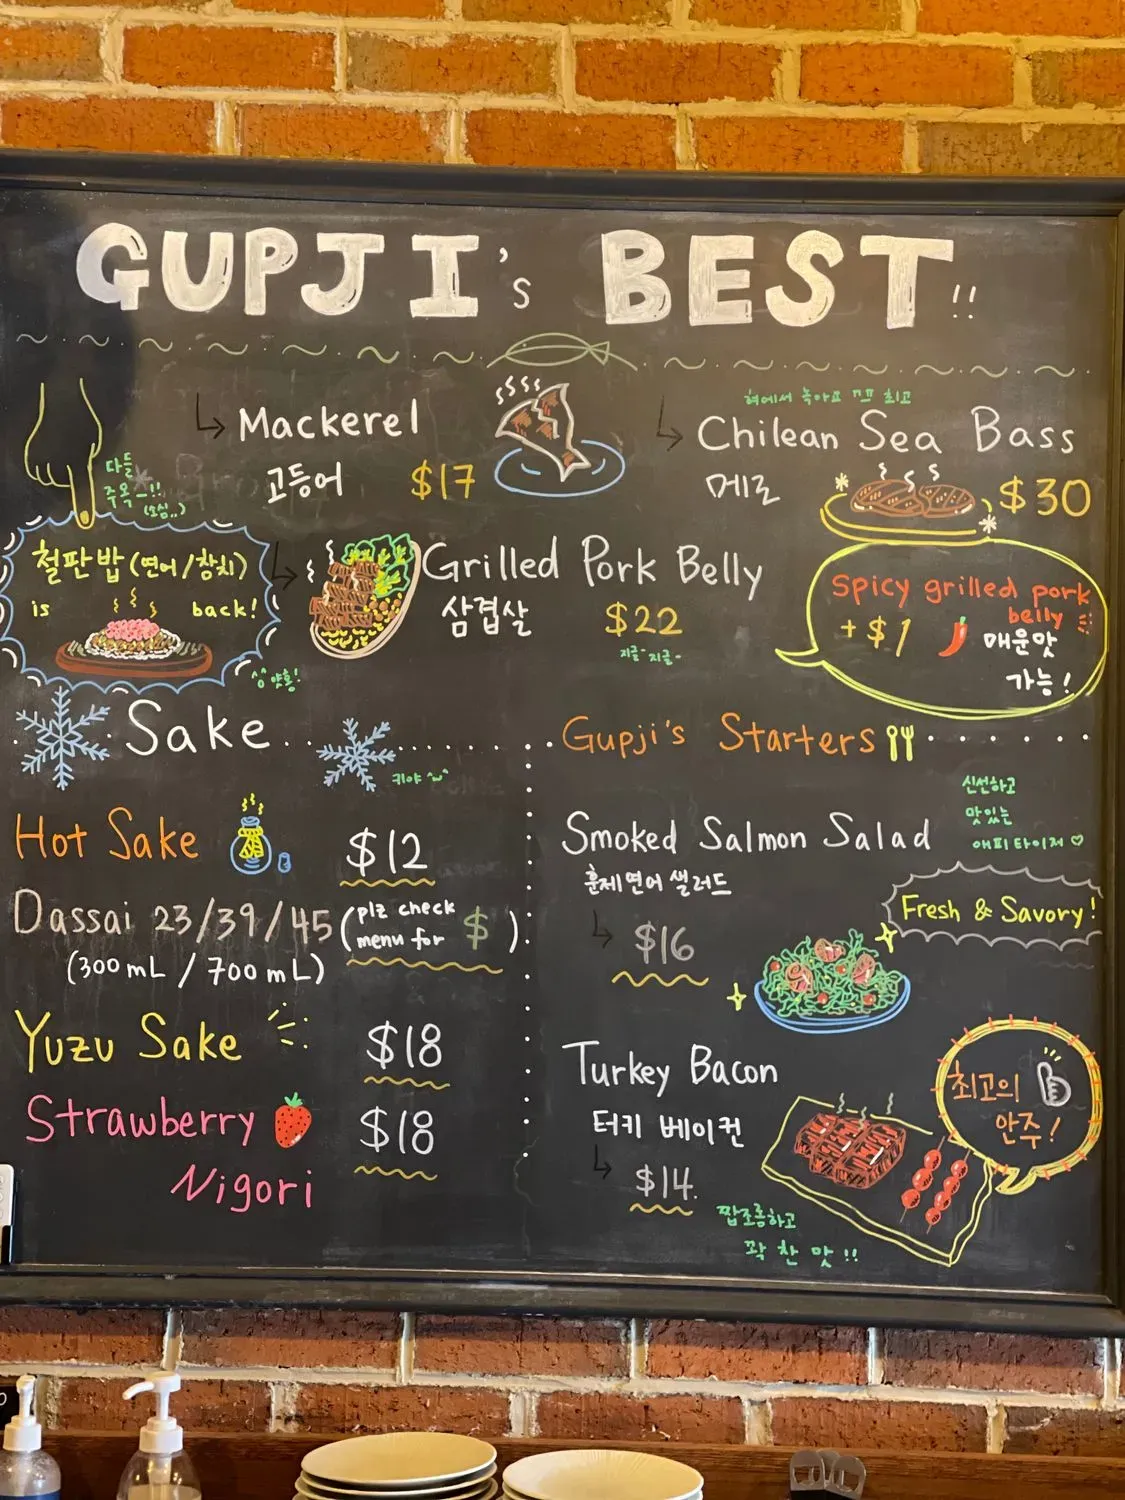 GUPJI's BEST!!
Mackerel
고등어 $17
혀에서 녹아요
최고
Chilean Sea Bass
메로 $30
다들
주목-!!
(소심..)
철판밥(연어/참치)
is back!
Grilled Pork Belly
삼겹살 $22
지글-지글-
spicy grilled pork
belly
+$1 매운맛
가능!
Sake
키야
Hot Sake $12
Dassai 23/39/45 (plz check
menu for $)
(300mL / 700mL)
Yuzu Sake $18
Strawberry $18
Nigori
Gupji's Starters
신선하고
맛있는
애피타이저♡
Smoked Salmon Salad
훈제연어 샐러드
$16
Fresh & Savory!
Turkey Bacon
터키 베이컨
$14.
최고의
안주!
짭조름하고
꽉 찬 맛!!